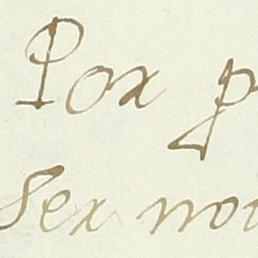 Pox p
Sex nou